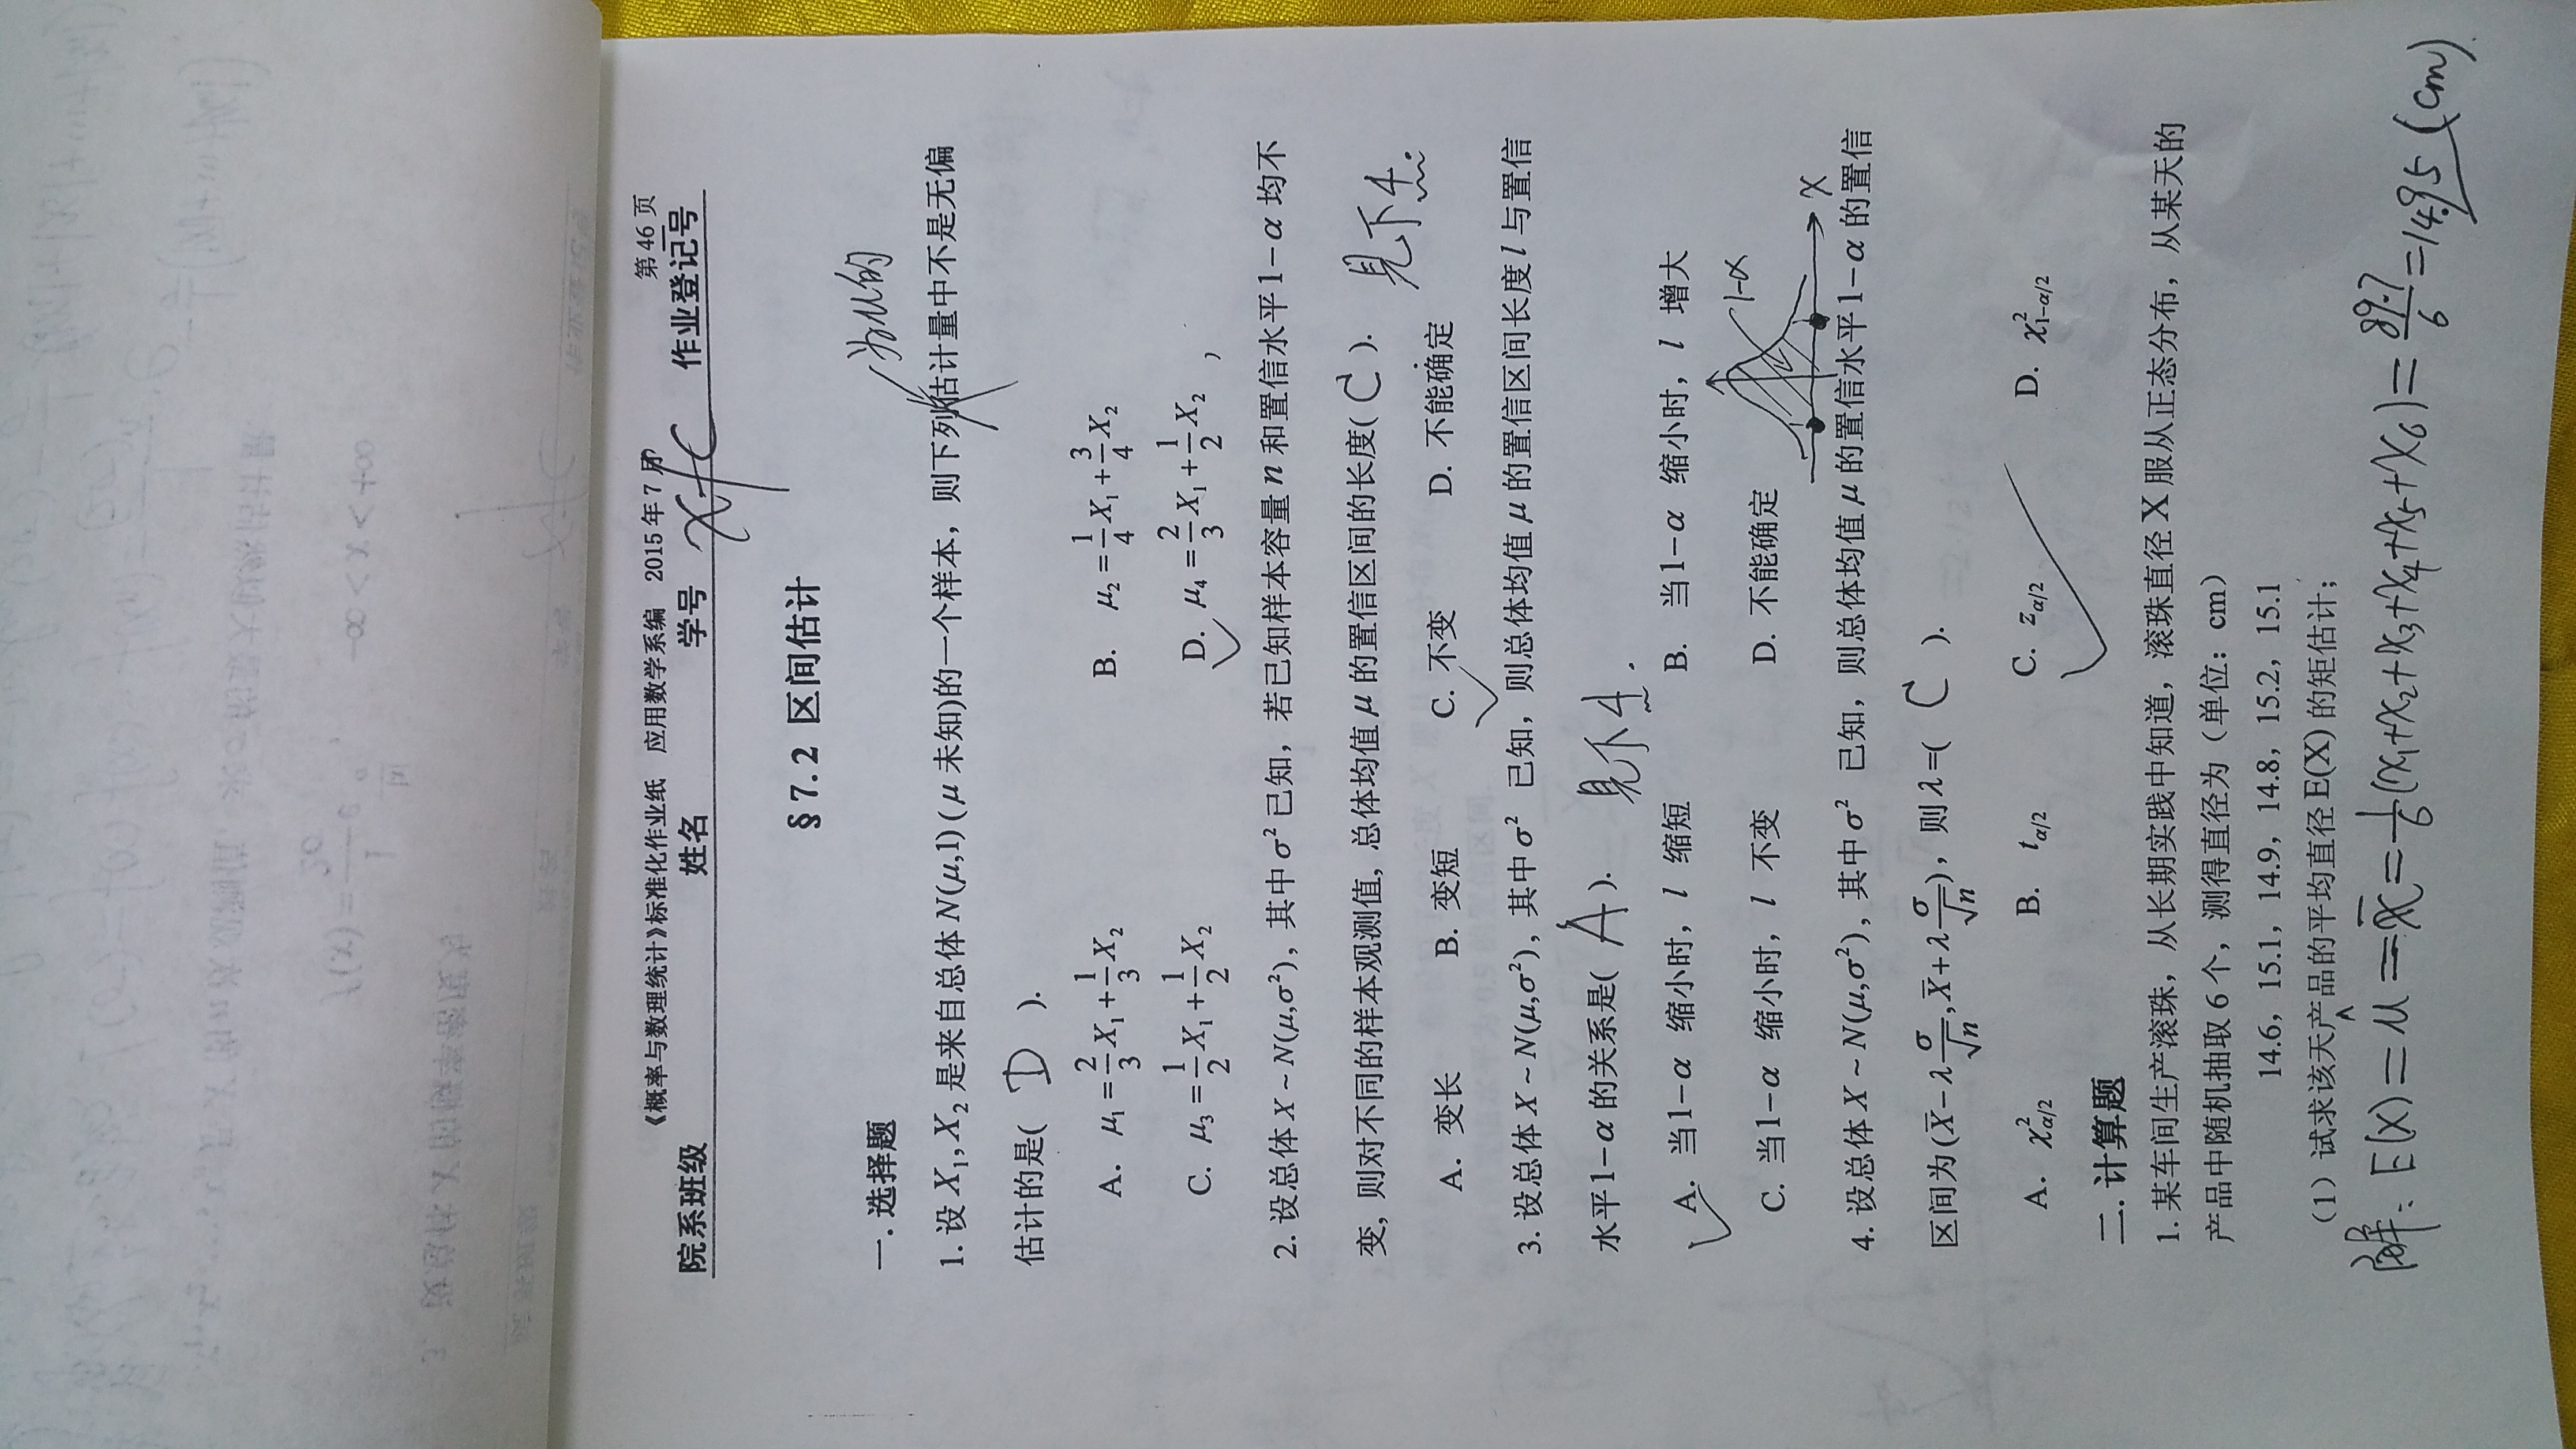 《概率与数理统计》标准化作业纸 应用数学系编 2015年7月 第46页
院系班级 姓名 学号 作业登记号
§7.2 区间估计
为μ的
一.选择题
1.设X₁,X₂是来自总体N(μ,1)(μ未知)的一个样本，则下列估计量中不是无偏
估计的是( D ).
A. μ₁=2/3X₁+1/3X₂ B. μ₂=1/4X₁+3/4X₂
C. μ₃=1/2X₁+1/2X₂ D. μ₄=2/3X₁+1/2X₂
2.设总体X~N(μ,σ²),其中σ²已知，若已知样本容量n和置信水平1-α均不
变,则对不同的样本观测值,总体均值μ的置信区间的长度( C ). 见下4.
A. 变长 B. 变短 C. 不变 D. 不能确定
3.设总体X~N(μ,σ²),其中σ² 已知，则总体均值μ的置信区间长度l与置信
水平1-α的关系是( A ). 见下4.
A. 当1-α 缩小时，l 缩短 B. 当1-α 缩小时，l 增大
C. 当1-α 缩小时，l 不变 D. 不能确定
1-α
x
4.设总体X~N(μ,σ²),其中σ² 已知，则总体均值μ的置信水平1-α的置信
区间为(X̄-λσ/√n,X̄+λσ/√n)，则λ=( C ).
A. χ²α/2 B. tα/2 C. zα/2 D. χ²1-α/2
二.计算题
1.某车间生产滚珠，从长期实践中知道，滚珠直径X服从正态分布，从某天的
产品中随机抽取6个，测得直径为（单位：cm）
14.6，15.1，14.9，14.8，15.2，15.1
（1）试求该天产品的平均直径E(X)的矩估计；
解: E(X)=μ̂=x̄=1/6(x₁+x₂+x₃+x₄+x₅+x₆)=89.7/6=14.95 (cm).